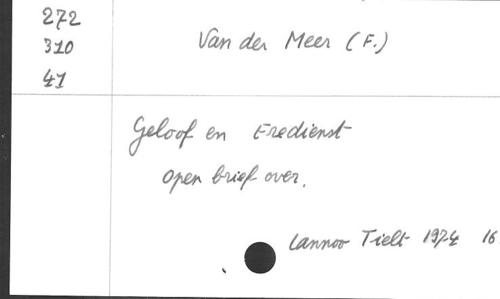 272
310
41
Van der Meer (F.)
Geloof en Eredienst
open brief over.
Lannoo Tielt 1974 16